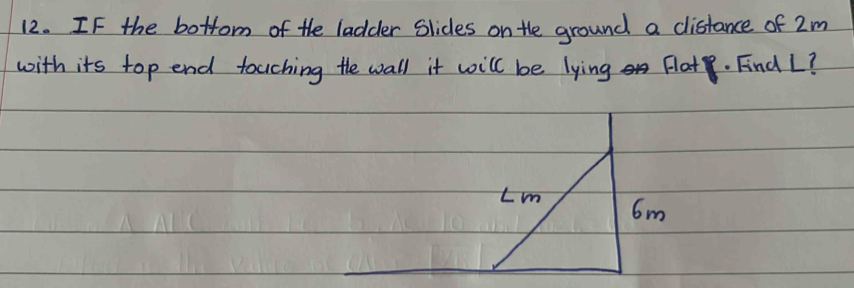 12. IF the bottom of the ladder Slides on the ground a distance of 2m
with its top end touching the wall it will be lying Flat. Find L?
L m
6m